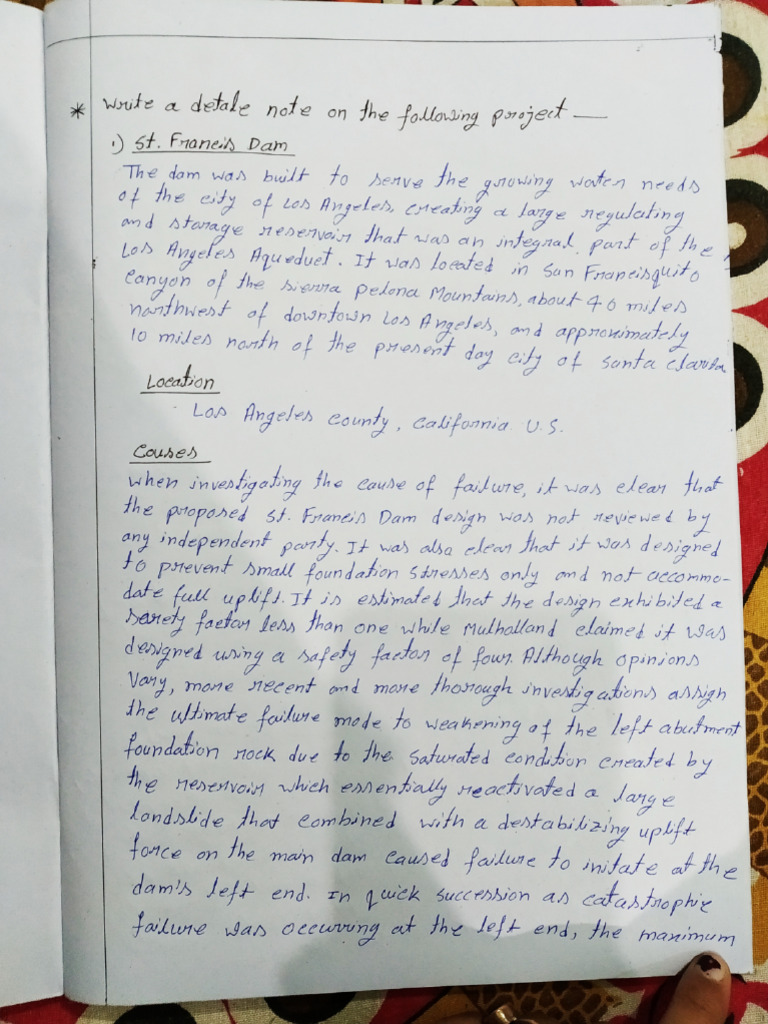 * Write a detale note on the following project —
1) St. Francis Dam
The dam was built to serve the growing water needs
of the city of Los Angeles, creating a large regulating
and storage reservoir that was an integral part of the
Los Angeles Aqueduct. It was located in San Francisquito
Canyon of the Sierra Pelona Mountains, about 40 miles
northwest of downtown Los Angeles, and approximately
10 miles north of the present day city of Santa Clarita
Location
Los Angeles County, California U.S.
Causes
When investigating the cause of failure, it was clear that
the proposed St. Francis Dam design was not reviewed by
any independent party. It was also clear that it was designed
to prevent small foundation stresses only and not accommo-
date full uplift. It is estimated that the design exhibited a
safety factor less than one while Mulholland claimed it was
designed using a safety factor of four. Although opinions
Vary, more recent and more thorough investigations assign
the ultimate failure mode to weakening of the left abutment
foundation rock due to the saturated condition created by
the reservoir which essentially reactivated a large
landslide that combined with a destabilizing uplift
force on the main dam caused failure to initate at the
dam's left end. In quick succession as catastrophic
failure was occurring at the left end, the maximum